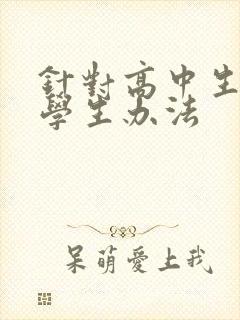 針對高中生
學生办法
呆萌愛上我